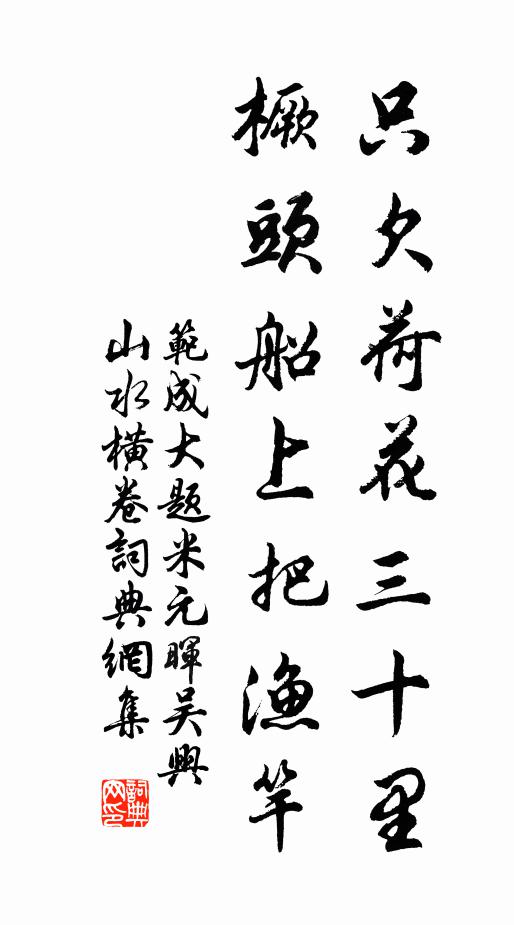 只欠荷花三十里
橛頭船上把漁竿
範成大題米元暉吴興
山水橫卷詞典網集
詞典
网印